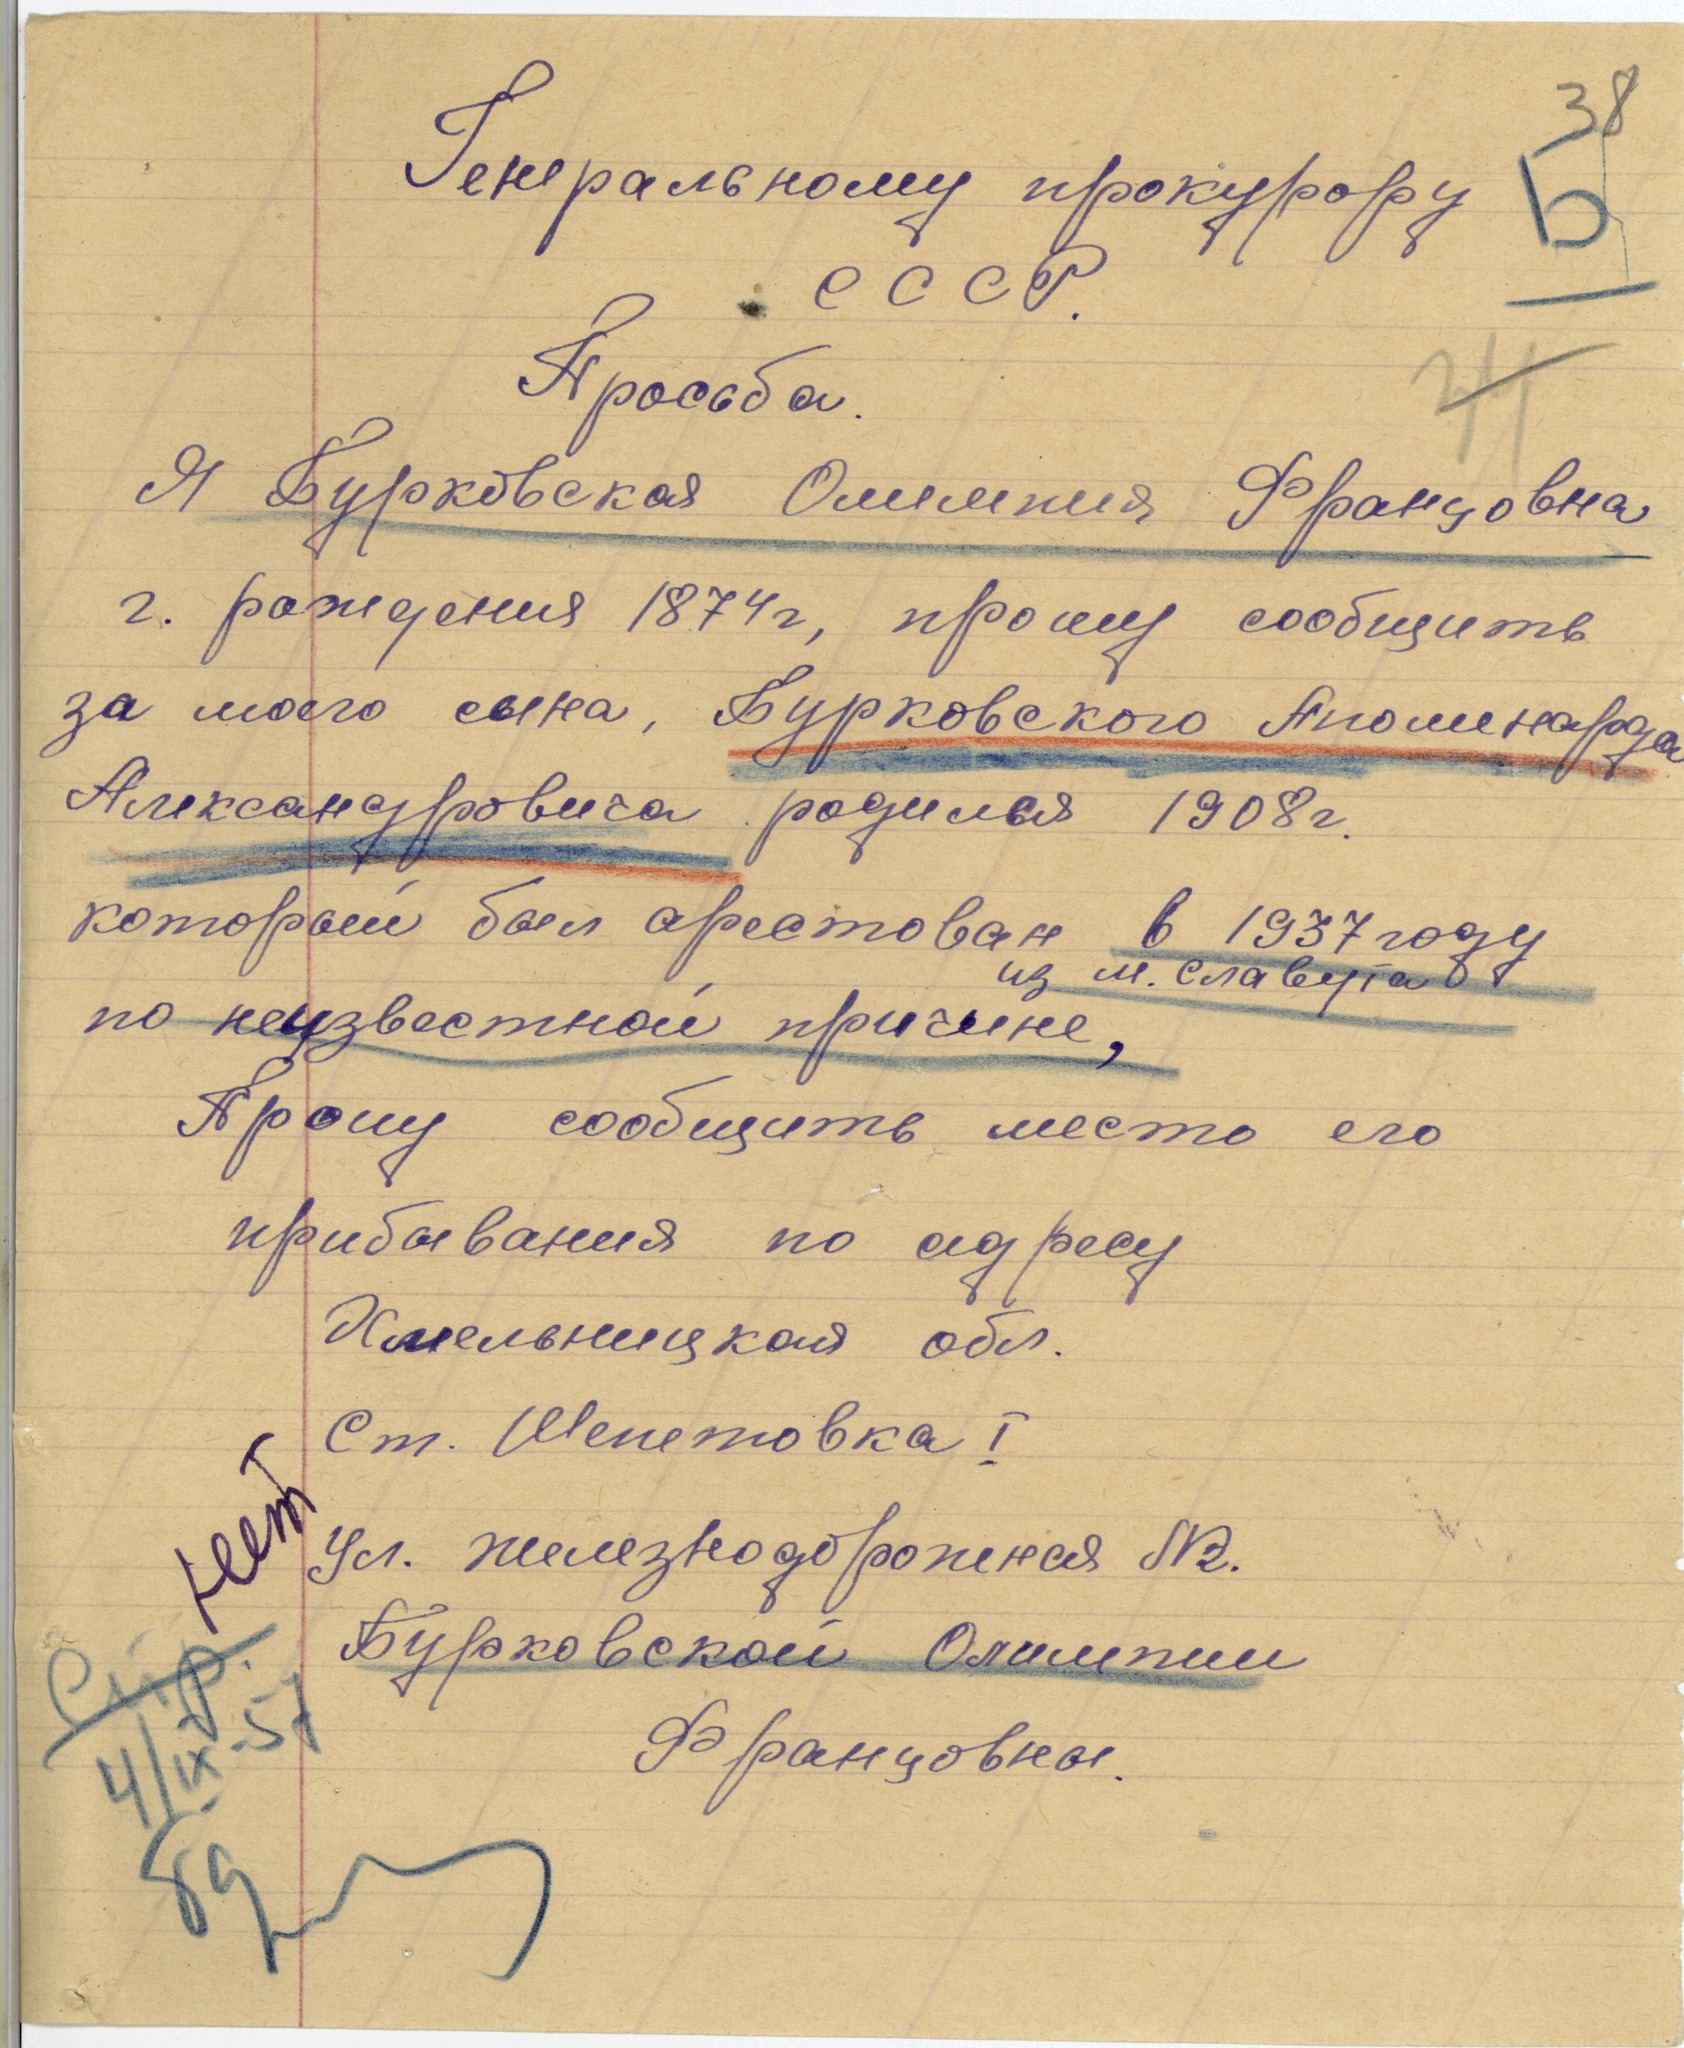 38
Б
Генеральному прокурору
СССР.
Просьба.
Я Бурковская Олимпия Францовна
г. рождения 1874г, прошу сообщить
за моего сына, Бурковского Аполинарда
Александровича родился 1908г.
который был арестован в 1937 году
из м. Славута
по неизвестной причине,
Прошу сообщить место его
прибывания по адресу
Хмельницкая обл.
Ст. Шепетовка I
Ул. железнодорожная №2.
Бурковской Олимпии
Францовны.
нет
Спр.
4/IX-57